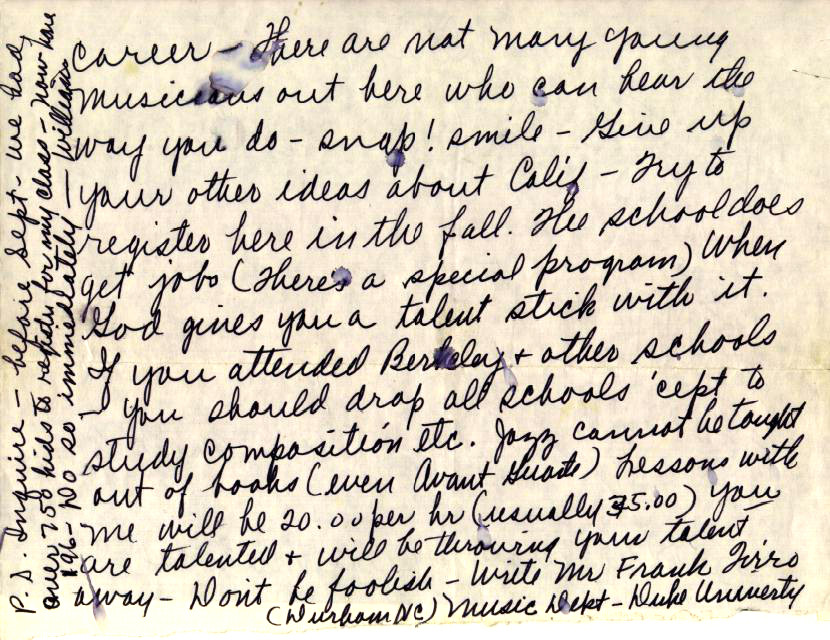 career - There are not many young
musicians out here who can hear the
way you do - snap! smile - Give up
your other ideas about Calif - Try to
register here in the fall. The school does
get jobs (There's a special program) When
God gives you a talent stick with it.
If you attended Berkley + other schools
you should drop all schools 'cept to
study composition etc. Jazz cannot be taught
out of books (even Avant Guarde) Lessons with
me will be 20.00 per hr (usually 35.00) You
are talented + will be throwing your talent
away - Dont be foolish - Write Mr Frank Tirro
(Durham NC) Music Dept - Duke Univerty
P.S. Inquire - before Sept - we had
over 750 kids to register for my class - now have
196 - Do so immediately - William